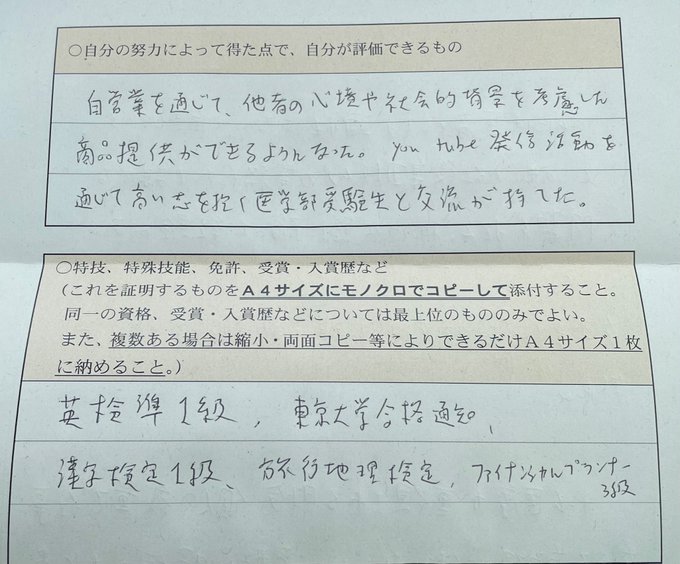 ○自分の努力によって得た点で、自分が評価できるもの
自営業を通じて、他者の心境や社会的背景を考慮した
商品提供ができるようになった。you tube 発信活動を
通じて高い志を抱く医学部受験生と交流が持てた。
○特技、特殊技能、免許、受賞・入賞歴など
(これを証明するものをA4サイズにモノクロでコピーして添付すること。
同一の資格、受賞・入賞歴などについては最上位のもののみでよい。
また、複数ある場合は縮小・両面コピー等によりできるだけA4サイズ1枚
に納めること。)
英検準1級, 東京大学合格通知,
漢字検定1級、旅行地理検定, ファイナンシャルプランナー
3級